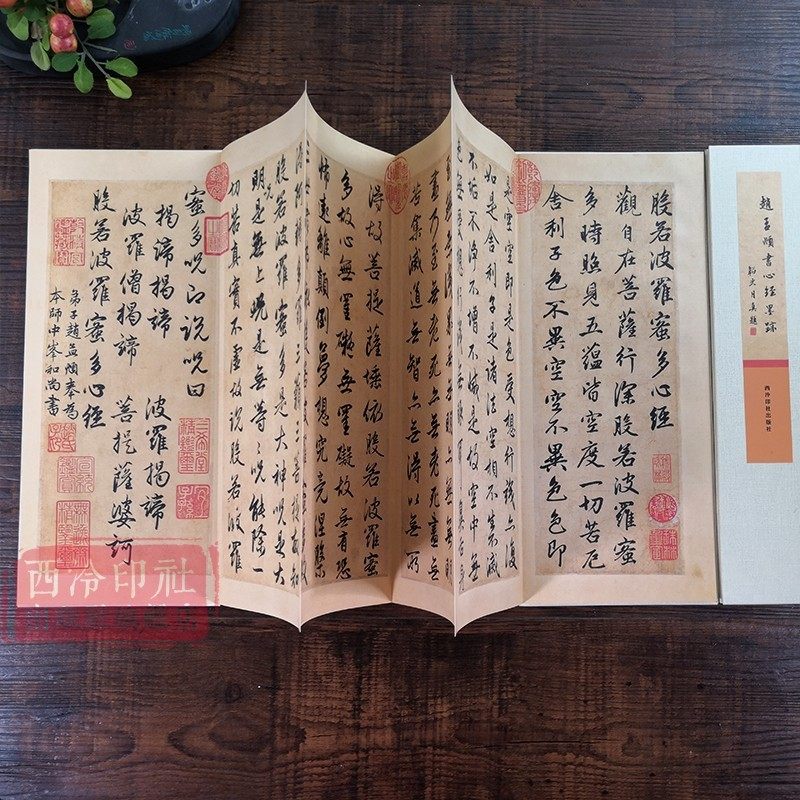 趙孟頫書心經墨跡
西泠印社出版社
般若波羅蜜多心經
觀自在菩薩行深般若波羅蜜
多時照見五蘊皆空度一切苦厄
舍利子色不異空空不異色色即
是空空即是色受想行識亦復
如是舍利子是諸法空相不生不滅
不垢不淨不增不減是故空中無
盡乃至無老死亦無老死盡無
苦集滅道無智亦無得以無所
得故菩提薩埵依般若波羅蜜
多故心無罣礙無罣礙故無有恐
怖遠離顛倒夢想究竟涅槃
般若波羅蜜多是大神咒是大
明咒是無上咒是無等等咒能除一
切苦真實不虛故說般若波羅
蜜多咒即說咒曰
揭諦揭諦 波羅揭諦
波羅僧揭諦 菩提薩婆訶
般若波羅蜜多心經
弟子趙孟頫奉為
本師中峯和尚書
西泠印社